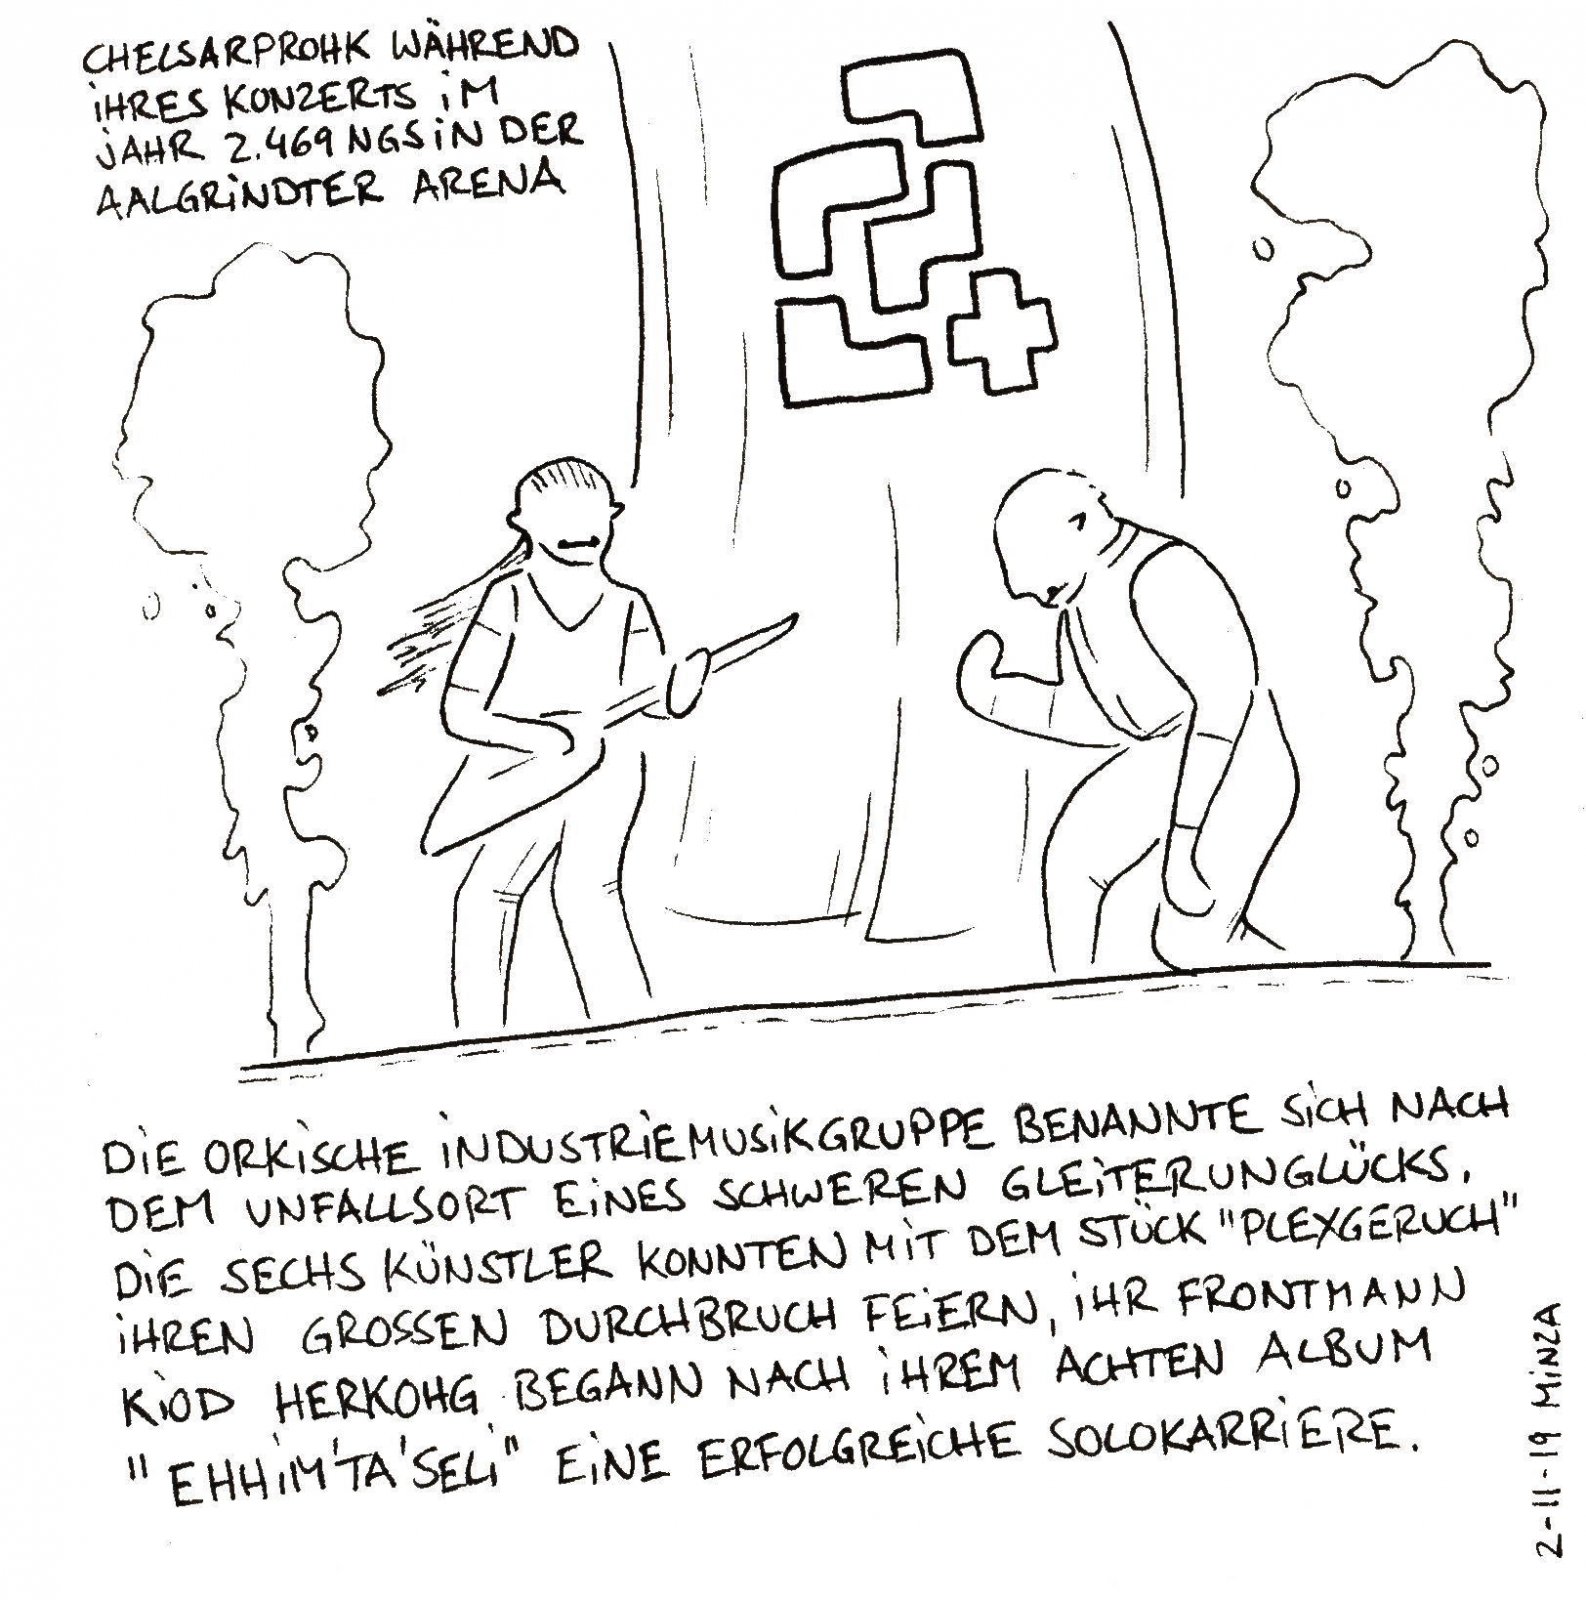 CHELSARPROHK WÄHREND
IHRES KONZERTS IM
JAHR 2.469 NGS IN DER
AALGRINDTER ARENA
DIE ORKISCHE INDUSTRIEMUSIKGRUPPE BENANNTE SICH NACH
DEM UNFALLSORT EINES SCHWEREN GLEITERUNGLÜCKS.
DIE SECHS KÜNSTLER KONNTEN MIT DEM STÜCK "PLEXGERUCH"
IHREN GROSSEN DURCHBRUCH FEIERN, IHR FRONTMANN
KIOD HERKOHG BEGANN NACH IHREM ACHTEN ALBUM
"EHHIM'TA'SELI" EINE ERFOLGREICHE SOLOKARRIERE.
2-11-19 MINZA